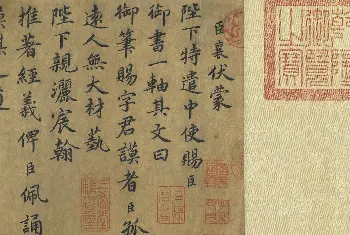 臣襄伏蒙
陛下特遣中使賜臣
御書一軸其文曰
御筆賜字君謨者臣孤
遠人無大材藝
陛下親灑宸翰
推著經義俾臣佩誦